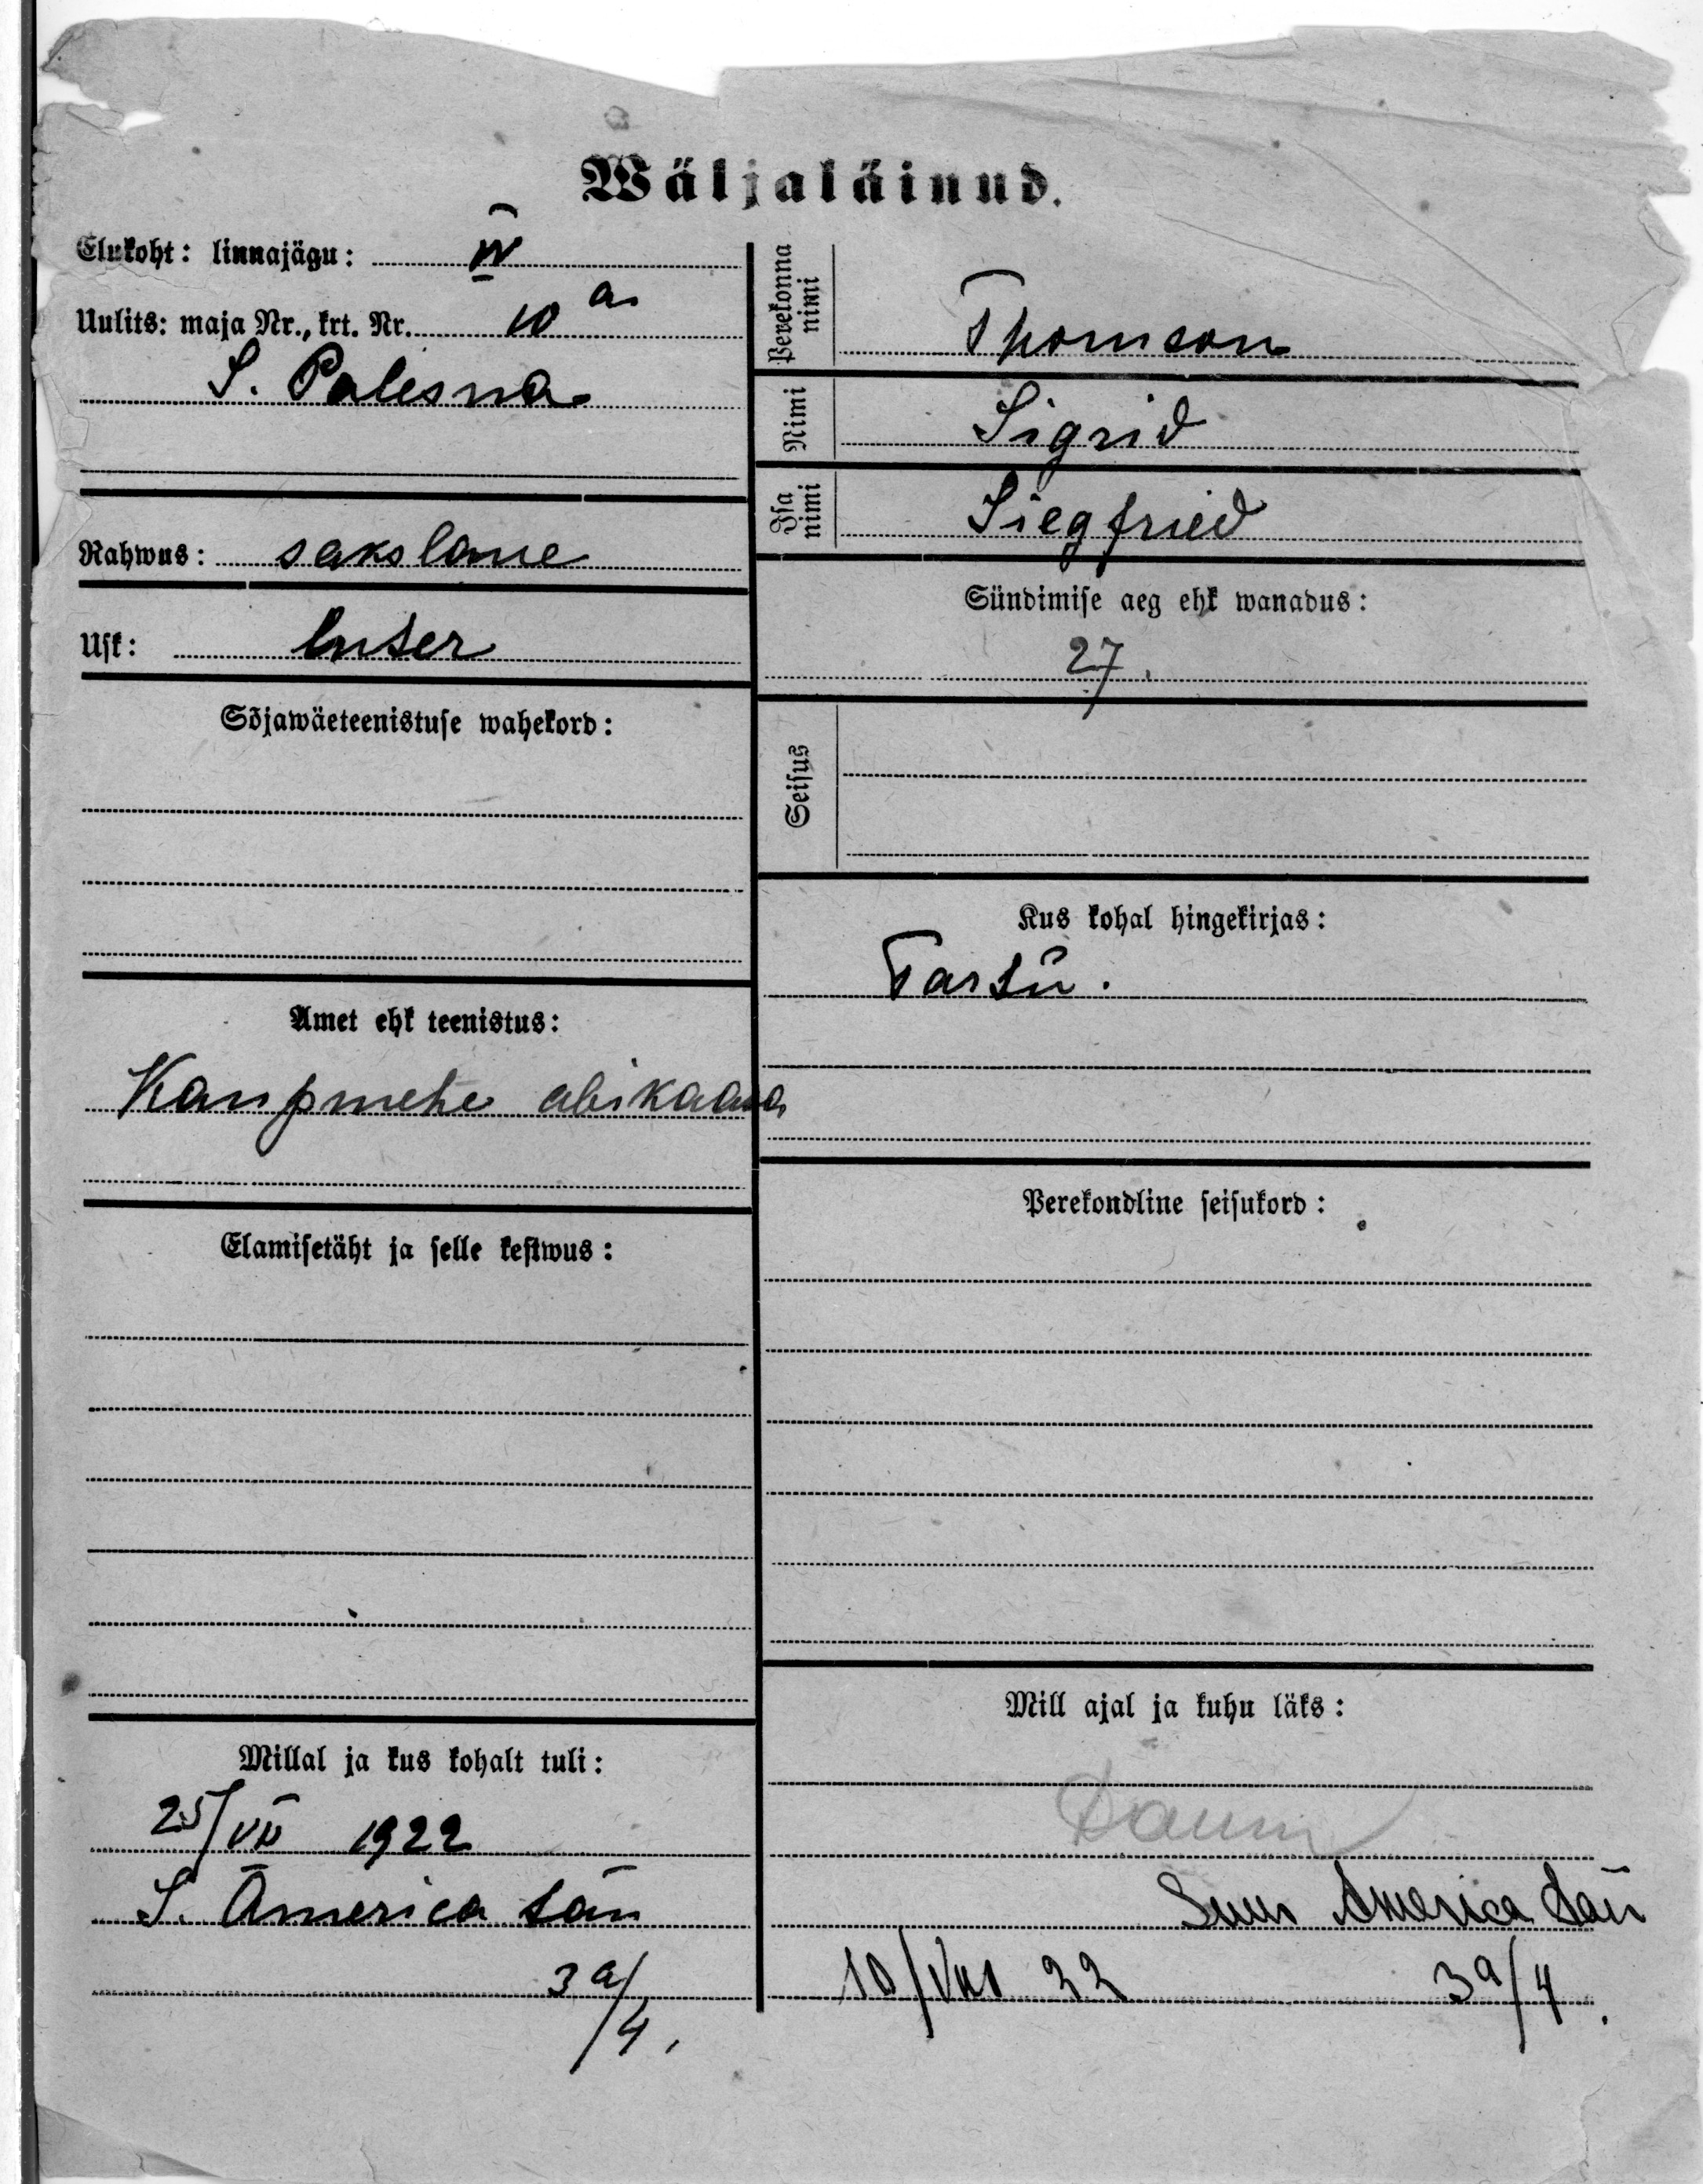 Wäljaläinud.
Elukoht: linnajägu: IV
Uulits: maja Nr., krt. Nr. 10 a
S. Palesna
Rahwus: sakslane
Usk: luter
Sõjawäeteenistuse wahekord:
Amet ehk teenistus:
Kaupmehe abikaasa
Elamisetäht ja selle kestwus:
Millal ja kus kohalt tuli:
25/VII 1922
S. America tän
3a/4.
Perekonna nimi Thomson
Nimi Sigrid
Isa nimi Siegfried
Sündimise aeg ehk wanadus:
27.
Seisus
Kus kohal hingekirjas:
Tartu.
Perekondline seisukord:
Mill ajal ja kuhu läks:
Suur America tän
10/VIII 22 3a/4.